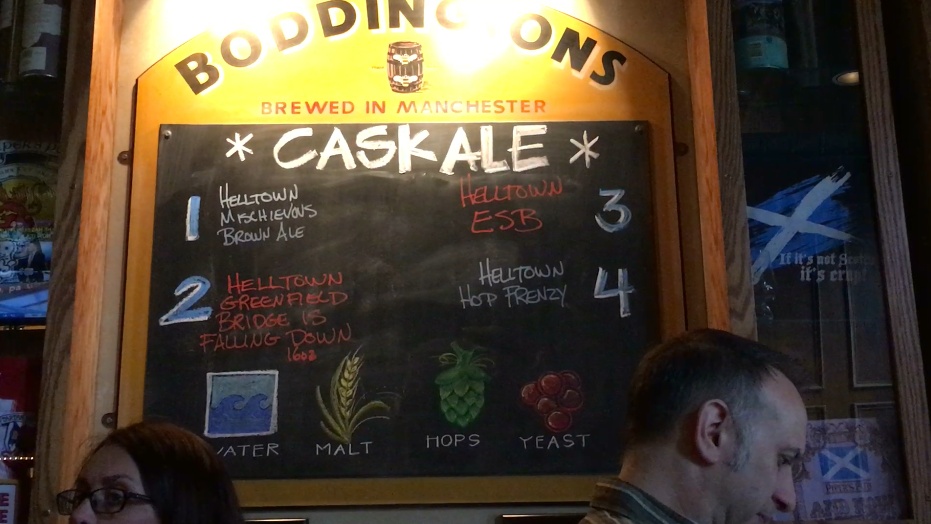 BODDINGTONS
BREWED IN MANCHESTER
* CASK ALE *
1
HELLTOWN
MISCHIEVOUS
BROWN ALE
2
HELLTOWN
GREENFIELD
BRIDGE IS
FALLING DOWN
16oz
HELLTOWN
ESB
3
HELLTOWN
HOP FRENZY
4
WATER
MALT
HOPS
YEAST
If it's not
it's